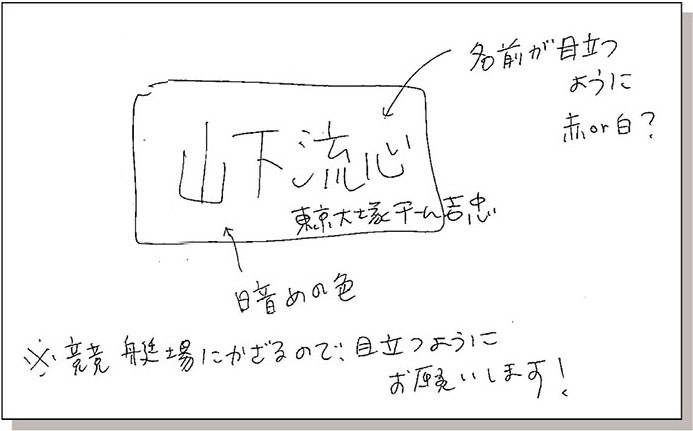 名前が目立つ
ように
赤or白?
山下流心
東京大塚チーム吉忠
暗めの色
※競艇場にかざるので、目立つように
お願いします!